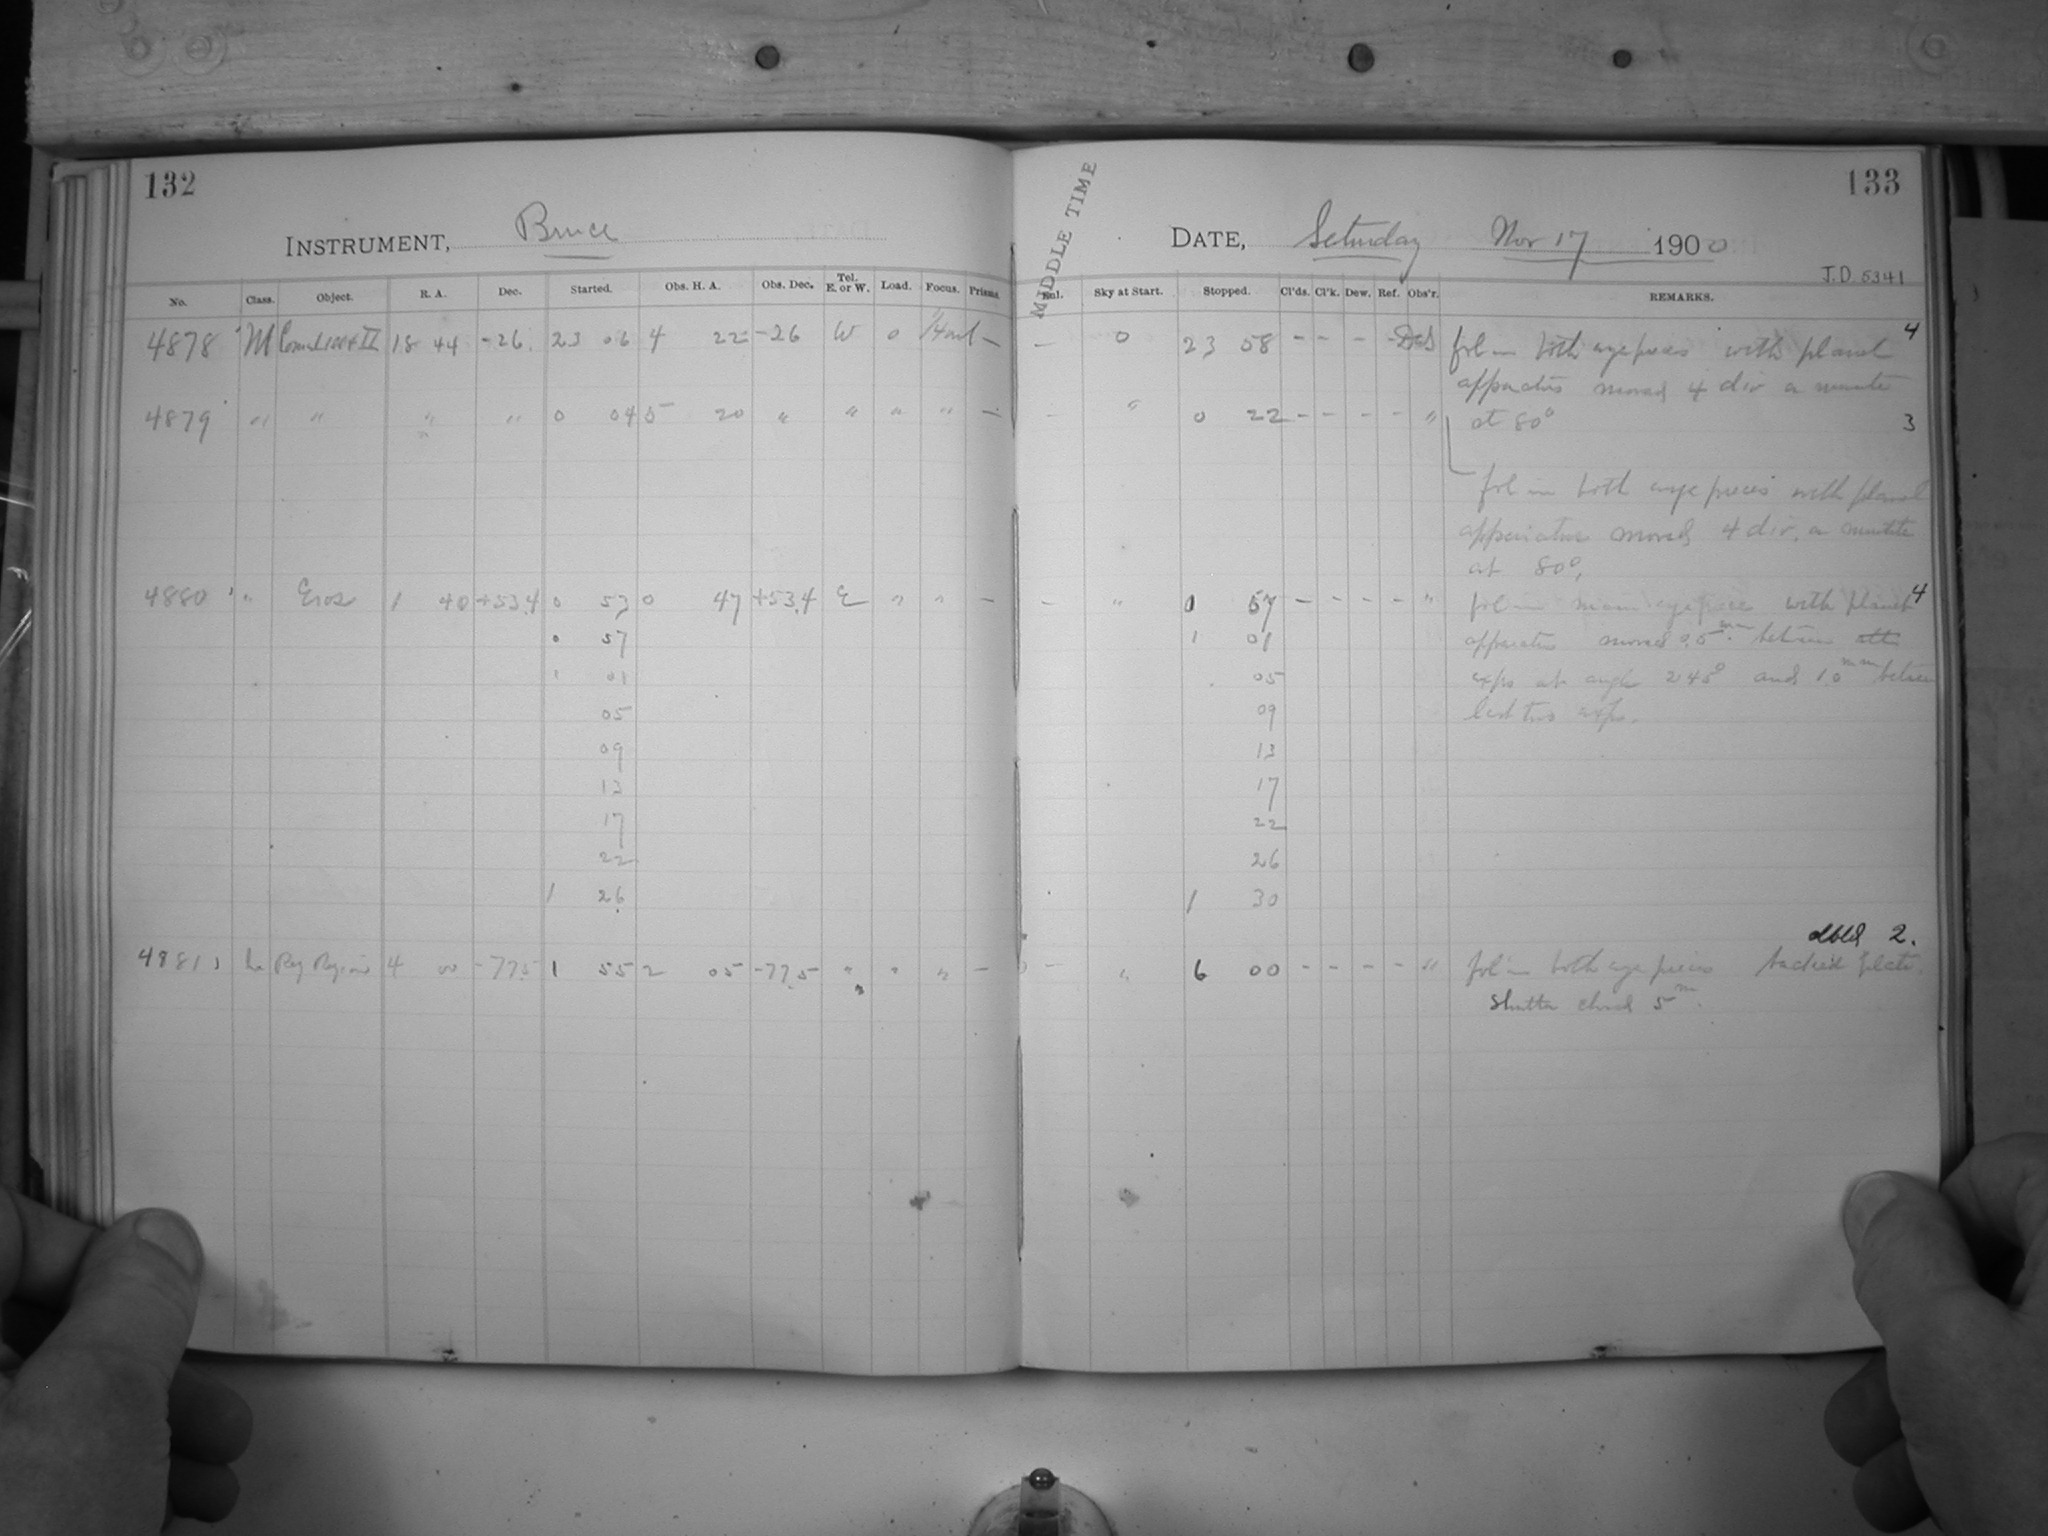 132
INSTRUMENT, Bruce
No. Class. Object. R. A. Dec. Started. Obs. H. A. Obs. Dec. Tel. E. or W. Load. Focus. Prisms.
4878 M 18 44 -26 23 06 4 22 -26 W 0 —
4879 " " " " 0 04 5 20 " " " " —
4880 " Eros 1 40 +53.4 0 53 0 47 +53.4 E " " —
0 57
1 01
05
09
13
17
22
1 26
4881 4 00 -77.5 1 55 2 05 -77.5 " " " —
133
MIDDLE TIME
DATE, Saturday Nov 17 1900
J.D. 5341
Sky at Start. Stopped. Cl'ds. Cl'k. Dew. Ref. Obs'r. REMARKS.
— 0 23 58 - - - - fol in both eyepieces with planet 4
apparatus moved 4 div a minute
— " 0 22 - - - - " at 80° 3
fol in both eyepieces with planet
apparatus moved 4 div. a minute
at 80°.
— " 0 57 - - - - " fol in main eyepiece with planet 4
1 01 apparatus moved 0.5 mm between
05 exps at angle 245° and 1.0 mm between
09 last two exps.
13
17
22
26
1 30
dbld 2.
— " 6 00 - - - - " fol in both eyepieces backed plate
Shutter closed 5m.